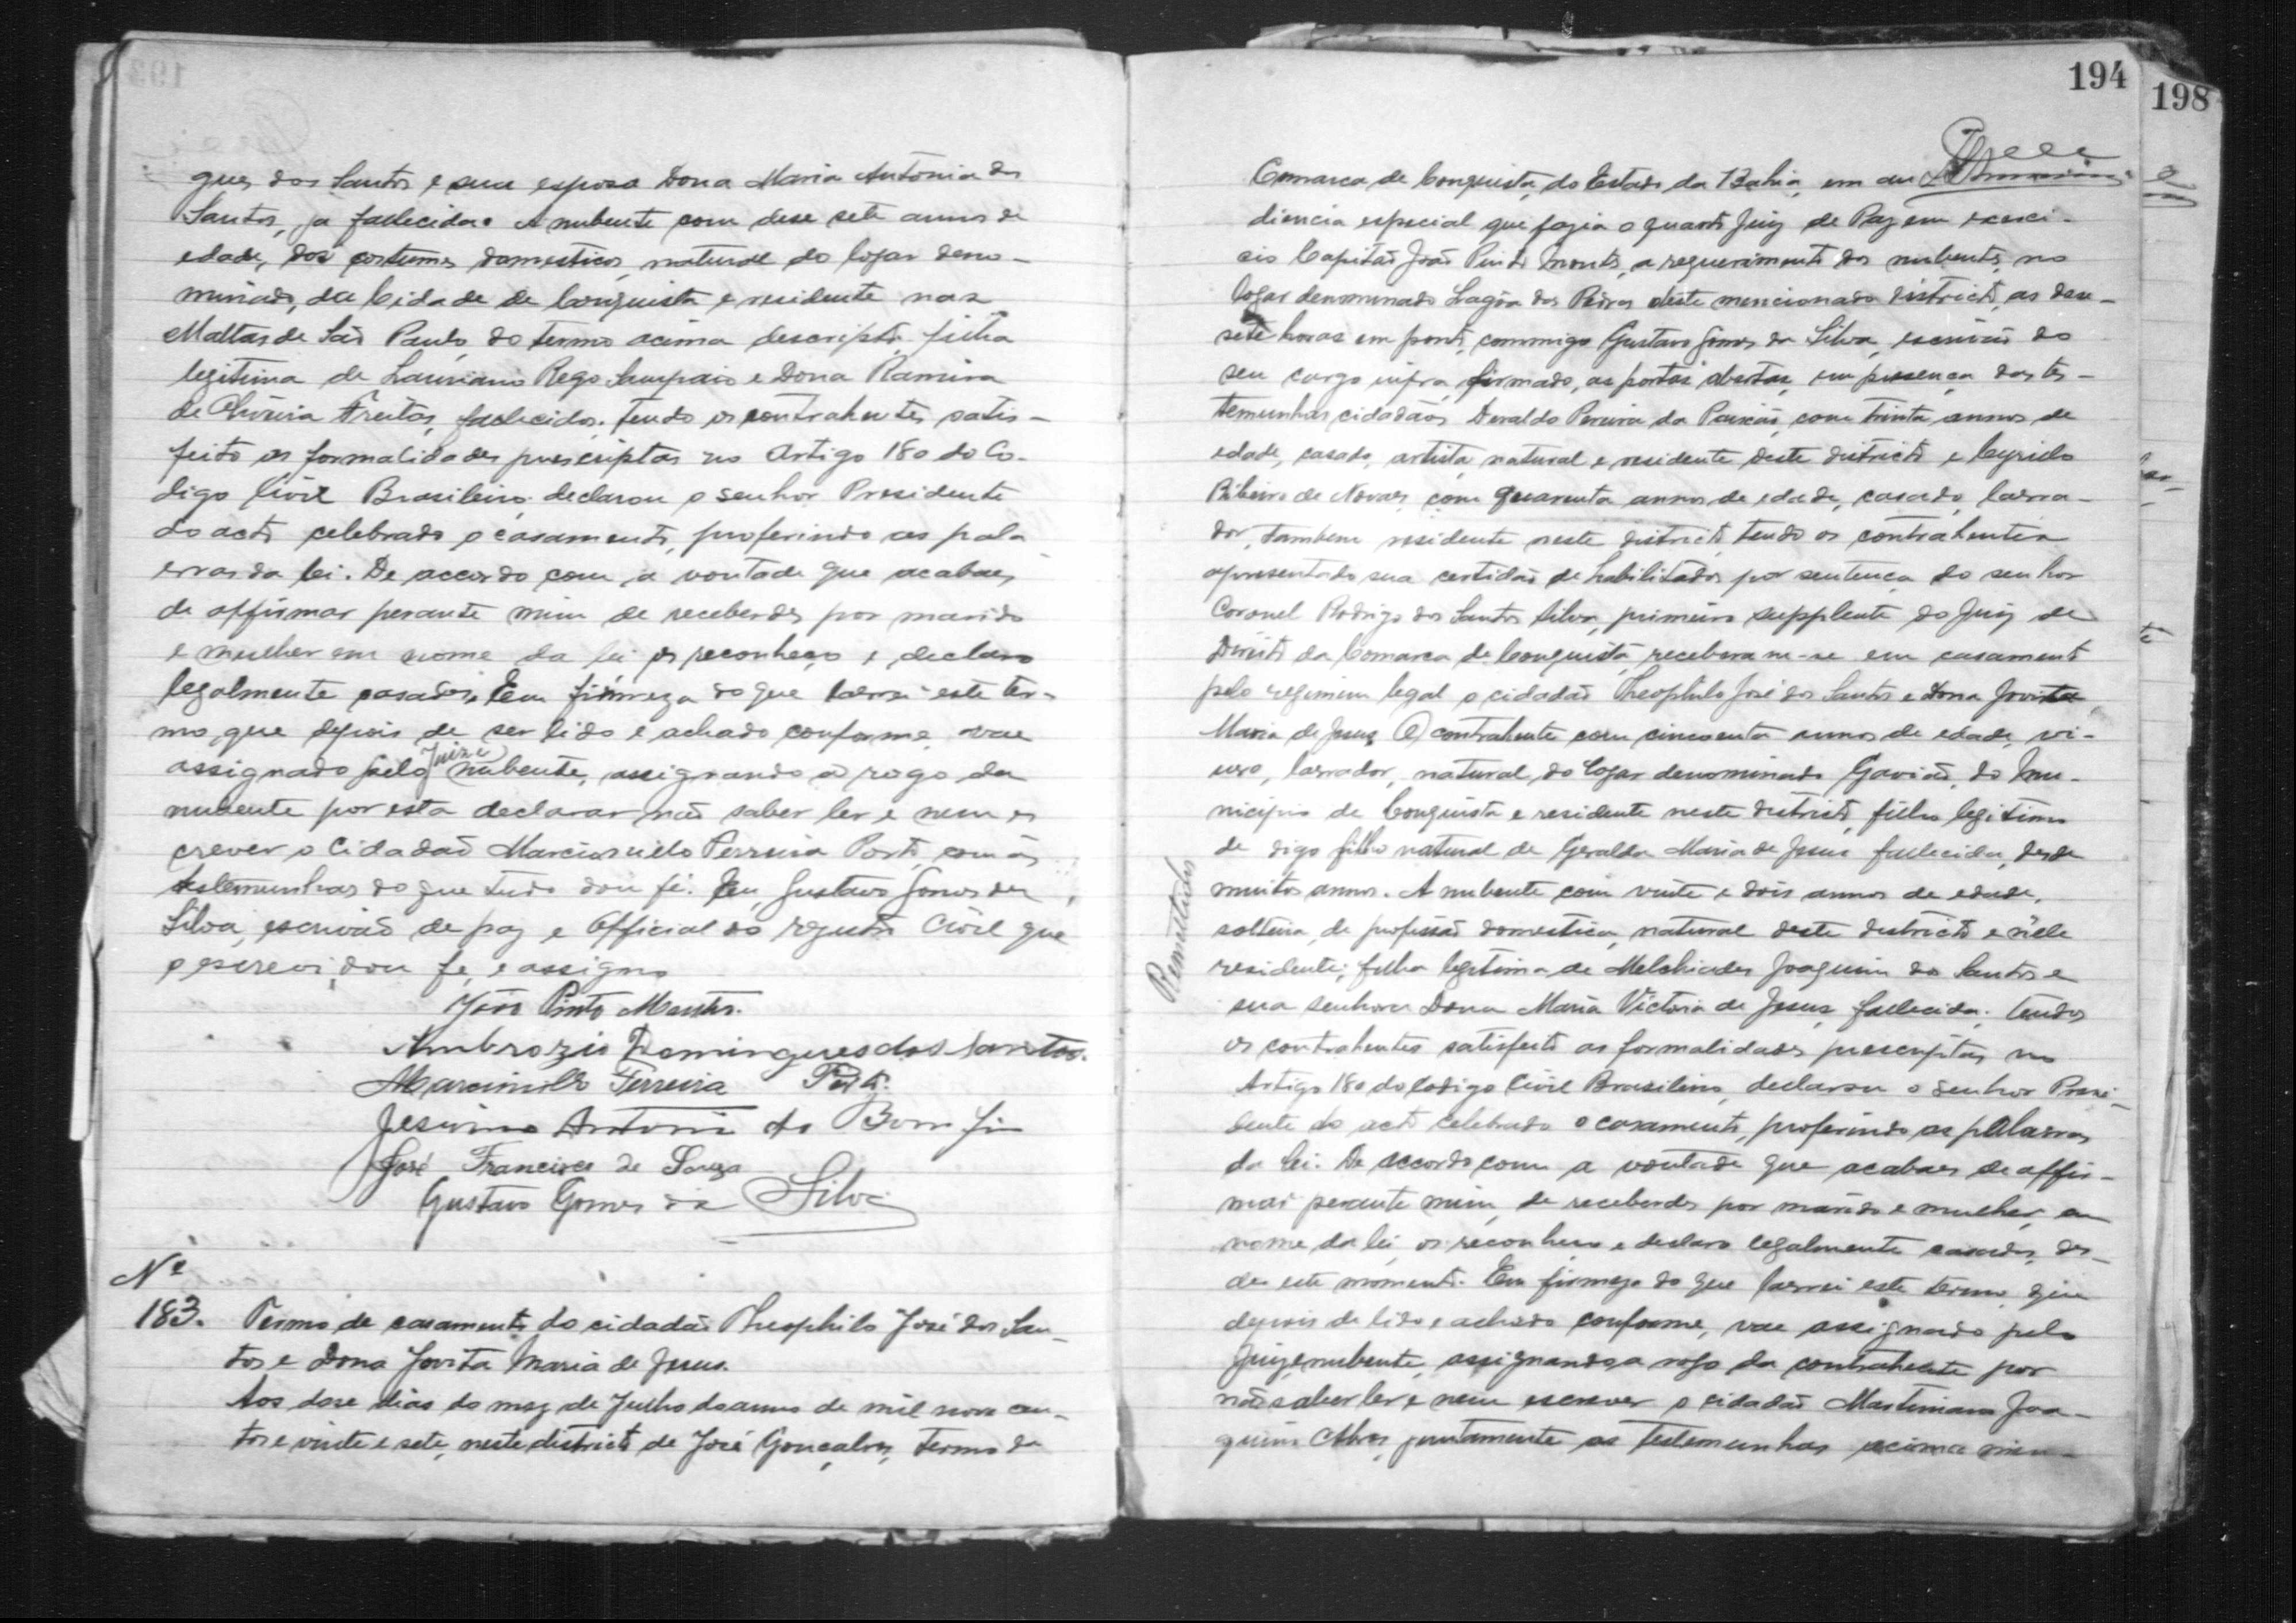 gues dos Santos e sua esposa Dona Maria Antonia dos
Santos, ja fallecida. A nubente com dese sete annos de
edade, dos costumes domesticos, natural do logar deno-
minado, da Cidade de Conquista e residente nas
Mattas de São Paulo, do termo acima descripto, filha
legitima de Lauriano Rego Sampaio e Dona Ramira
de Oliveira Freitas, fallecidos. tendo os contrahentes satis-
feito as formalidades prescriptas no Artigo 180 do Co-
digo Civil Brasileiro. declarou o senhor Presidente
do acto celebrado o casamento, proferindo as pala
vras da lei. De accordo com a vontade que acabaes
de affirmar perante mim de receberdes por marido
e mulher em nome da lei os reconheço e declaro
legalmente casados. Em firmeza do que lavrei este ter-
mo que depois de ser lido e achado conforme vae
assignado pelo Juiz e nubente, assignando a rogo da
nubente por esta declarar não saber ler e nem es
crever o Cidadão Marcionilo Ferreira Porto com as
testemunhas do que tudo dou fé. Eu, Gustavo Gomes da
Silva, escrivão de paz e Official do registro Civil que
o escrevi, dou fe, e assigno
João Pinto Montes.
Ambrozio Domingues dos Santos.
Marcionillo Ferreira Porto.
Jesuino Antonio do Bomfim
José Francisco de Souza
Gustavo Gomes da Silva
Nº
183. Termo de casamento do cidadão Theophilo José dos San-
tos e Dona Jovita Maria de Jesus.
Aos dose dias do mez de Julho do anno de mil nove cen-
tos e vinte e sete, neste districto de José Gonçalves, termo da
194
198
Comarca de Conquista, do Estado da Bahia, em au
diencia especial que fazia o quarto Juiz de Paz em exerci-
cio Capitão João Pinto Montes, a requerimento dos nubentes, no
logar denominado Lagôa das Pedras deste mencionado districto, as dese-
sete horas em ponto, commigo Gustavo Gomes da Silva, escrivão do
seu cargo infra firmado, as portas abertas, em presença das tes-
temunhas cidadãos Deraldo Pereira da Paixão, com trinta annos de
edade, casado, artista, natural e residente deste districto e Cyrielo
Ribeiro de Novaes, com quarenta annos de edade, casado, lavra-
dor, tambem residente neste districto, tendo os contrahentes
apresentado sua certidão de habilitados por sentença do senhor
Coronel Rodrigo dos Santos Silva, primeiro supplente do Juiz de
Direito da Comarca de Conquista, receberam-se em casamento
pelo regimem legal o cidadão Theophilo José dos Santos e Dona Jovita
Maria de Jesus. O contrahente com cincoenta annos de edade, vi-
uvo, lavrador, natural do logar denominado Gavião, do Mu-
nicipio de Conquista e residente neste districto, filho legitimo
de digo filho natural de Geralda Maria de Jesus fallecida, desde
muitos annos. A nubente com vinte e dois annos de edade,
solteira, de profissão domestica, natural deste districto e nelle
residente, filha legitima de Melchiades Joaquim dos Santos e
sua senhora Dona Maria Victoria de Jesus, fallecida. tendo
os contrahentes satisfeito as formalidades prescriptas no
Artigo 180 do Codigo Civil Brasileiro, declarou o senhor Presi-
dente do acto celebrado o casamento, proferindo as palavras
da lei. De accordo com a vontade que acabaes de affir-
mar perante mim, de receberdes por marido e mulher, em
nome da lei, os reconheço e declaro legalmente casados, des-
de este momento. Em firmeza do que lavrei este termo, que
depois de lido e achado conforme, vae assignado pelo
Juiz, e nubente, assignando a rogo da contrahente por
não saber ler e nem escrever o cidadão Martiniano Joa-
quim Alves, juntamente as testemunhas acima men-